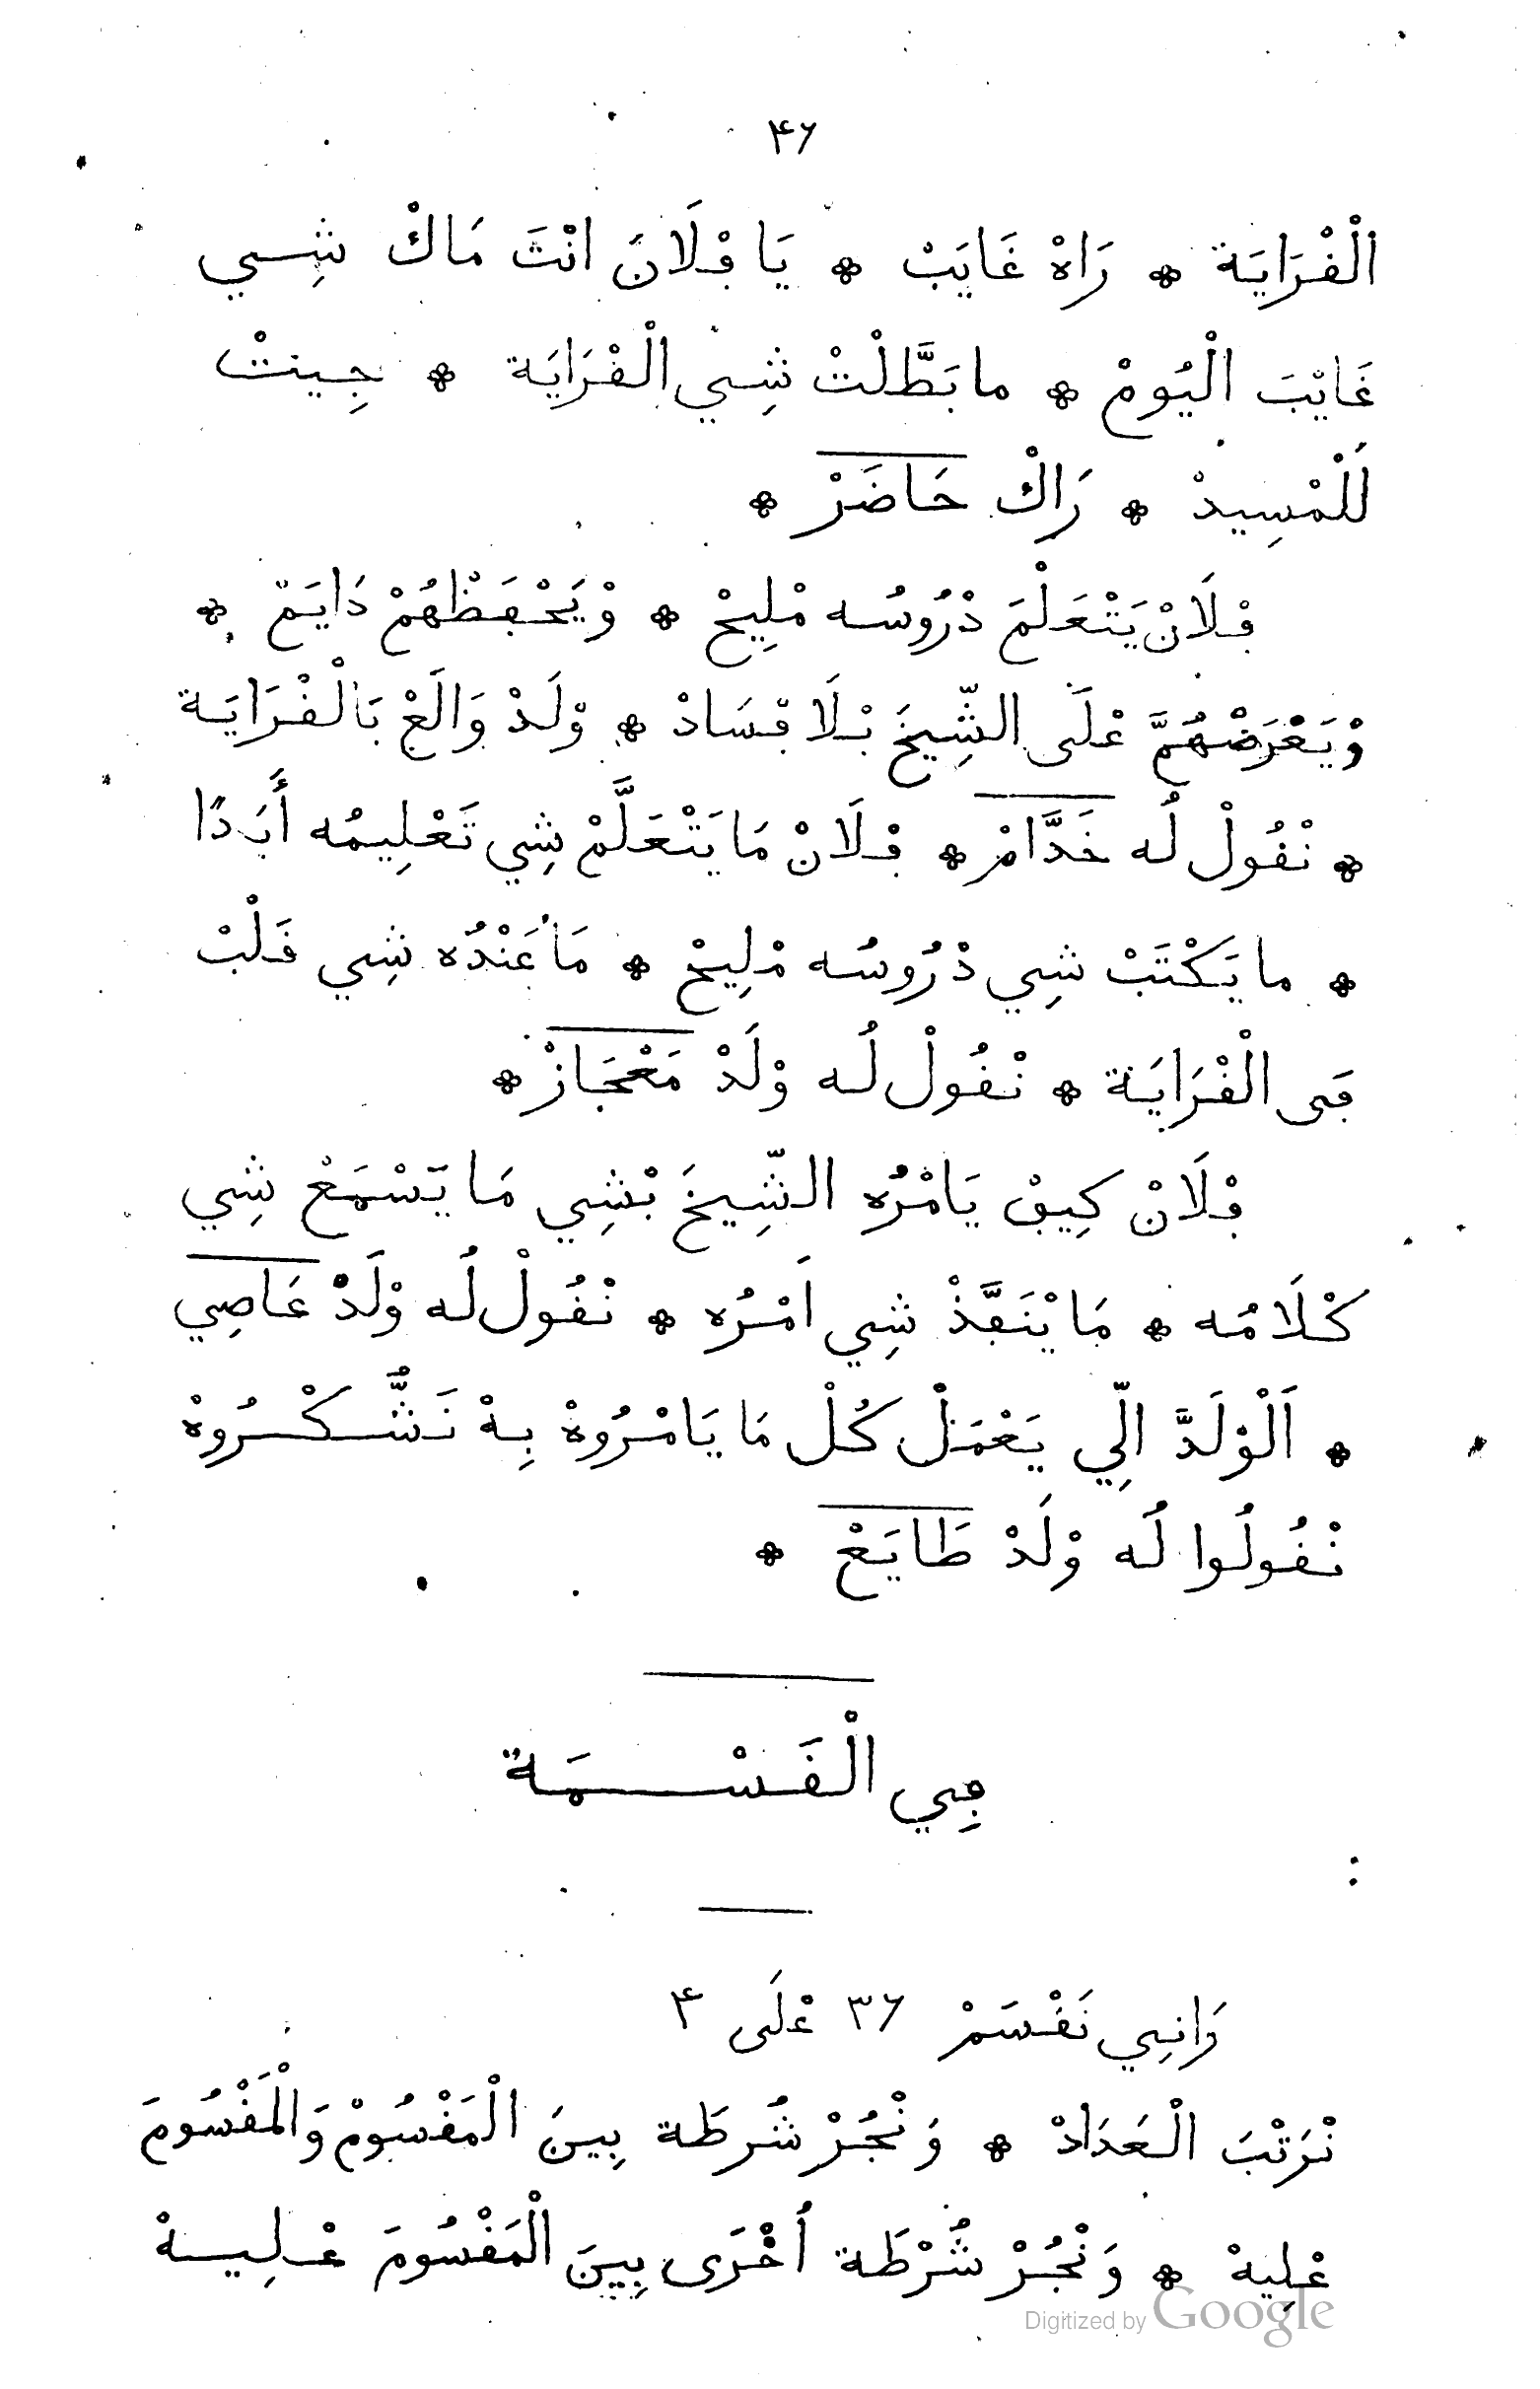 ۴۶
الْڧْرَايَة * رَاهْ غَايَبْ * يَا ڢْلَانَ انْتَ مَاكْ شِي
غَايْبَ الْيُومْ * ما بَطَّلْتْ شِي الْڧْرَايَة * جِيتْ
لَلْمْسِيدْ * رَاكْ حَاضَرْ *
ڢْلَانْ يَتْعَلْمَ دْرُوسُه مْلِيحْ * وْيَحْڢَظْهُمْ دَايَمْ *
وْيَعْرَضْهُمَّ عْلَى الشِّيخَ بْلَا ڢْسَادْ * وْلَدْ وَالَعْ بَالْڧْرَايَة
* نْڧُولْ لُه خَدَّامْ * ڢْلَانْ مَا يَتْعَلَّمْ شِي تَعْلِيمُه أَبَدًا
* ما يَكْتَبْ شِي دْرُوسُه مْلِيحْ * مَا عَنْدُه شِي ڧَلْبْ
ڢَى الْڧْرَايَة * نْڧُولْ لُه وْلَدْ مَعْجَازْ *
ڢْلَانْ كِيڢْ يَامْرُه الشِّيخَ بْشِي مَا يَسْمَعْ شِي
كْلَامُه * مَا يْنَڢَّذْ شِي اَمْرُه * نْڧُولْ لُه وْلَدْ عَاصِي
* اَلْوْلَدَّ الِّي يَعْمَلْ كُلْ مَا يَامْرُوهْ بِهْ نَشُّكْرُوهْ
نْڧُولُوا لُه وْلَدْ طَايَعْ *
ڢِي الْڧَسْمَة
رَانِي نَڧْسَمْ ۳۶ عْلَى ۴
نْرَتْبَ الْعَدَادْ * وَنْجُرْ شُرطَة بِينَ الْمَڧْسُومْ وَالْمَڧْسُومَ
عْلِيهْ * وَنْجُرْ شُرْطَة اُخْرَى بِينَ الْمَڧْسُومَ عْلِيهْ
Digitized by Google